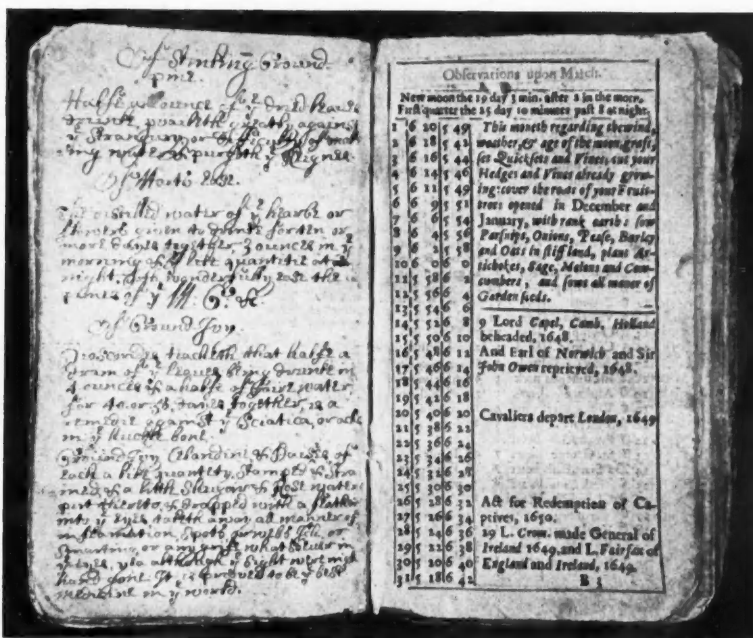 Of Stinking Ground
pine.
Halfe an ounce of yᵉ dried leaves
drunk, availeth greatly against
yᵉ Strangury or difficulty of mak
ing water & purgeth yᵉ
Of Harts ease.
The distilled water of yᵉ hearbe or
flowers given to drinke for ten or
more daies together 3 ounces in yᵉ
morning & yᵉ like quantitie at
night, doth wonderfully ease the
paines of yᵉ
Of Ground Ivy.
Dioscorides teacheth that halfe a
dram of yᵉ leaves being drunke in
4 ounces & a halfe of faire water
for 40 or 50 daies together, is a
remedie against yᵉ Sciatica, or ache
in yᵉ huckle bone.
Ground Ivy Celandine & Daisies of
each a like quantity, stamped & stra
ined & a little Sugar & Rose water
put thereto & dropped with a feather
into yᵉ eyes taketh away all manner of
inflamation, spots, webs, Itch, or
Smarting, or any griefe what soever in
yᵉ eyes, yea although yᵉ sight were nigh
hand gone It is proved to be yᵉ best
medicine in yᵉ world.
Observations upon March.
New moon the 19 day 3 min. after 8 in the morn.
First quarter the 25 day 10 minutes past 8 at night.
1 6 20 5 49
2 6 18 5 42
3 6 16 5 44
4 6 14 5 46
5 6 11 5 49
6 6 9 5 51
7 6 6 5 54
8 6 4 5 56
9 6 2 5 58
10 6 0 6 0
11 5 58 6 2
12 5 56 6 4
13 5 54 6 6
14 5 52 6 8
15 5 50 6 10
16 5 48 6 12
17 5 46 6 14
18 5 44 6 16
19 5 42 6 18
20 5 40 6 20
21 5 38 6 22
22 5 36 6 24
23 5 34 6 26
24 5 32 6 28
25 5 30 6 30
26 5 28 6 32
27 5 26 6 34
28 5 24 6 36
29 5 22 6 38
30 5 20 6 40
31 5 18 6 42
This moneth regarding the wind,
weather, & age of the moon, graft,
set Quicksets and Vines, cut your
Hedges and Vines already grow-
ing: cover the roots of your Fruit-
trees opened in December and
January, with rank earth: sow
Parsnips, Onions, Pease, Barley
and Oats in stiff land, plant Ar-
tichokes, Sage, Melons and Cow-
cumbers, and sows all maner of
Garden seeds.
9 Lord Capel, Camb, Holland
beheaded, 1648.
And Earl of Norwich and Sir
John Owen reprieved, 1648.
Cavaliers depart London, 1649
Act for Redemption of Ca-
ptives, 1650.
29 L. Crom. made General of
Ireland 1649, and L. Fairfax of
England and Ireland, 1649.
B 3